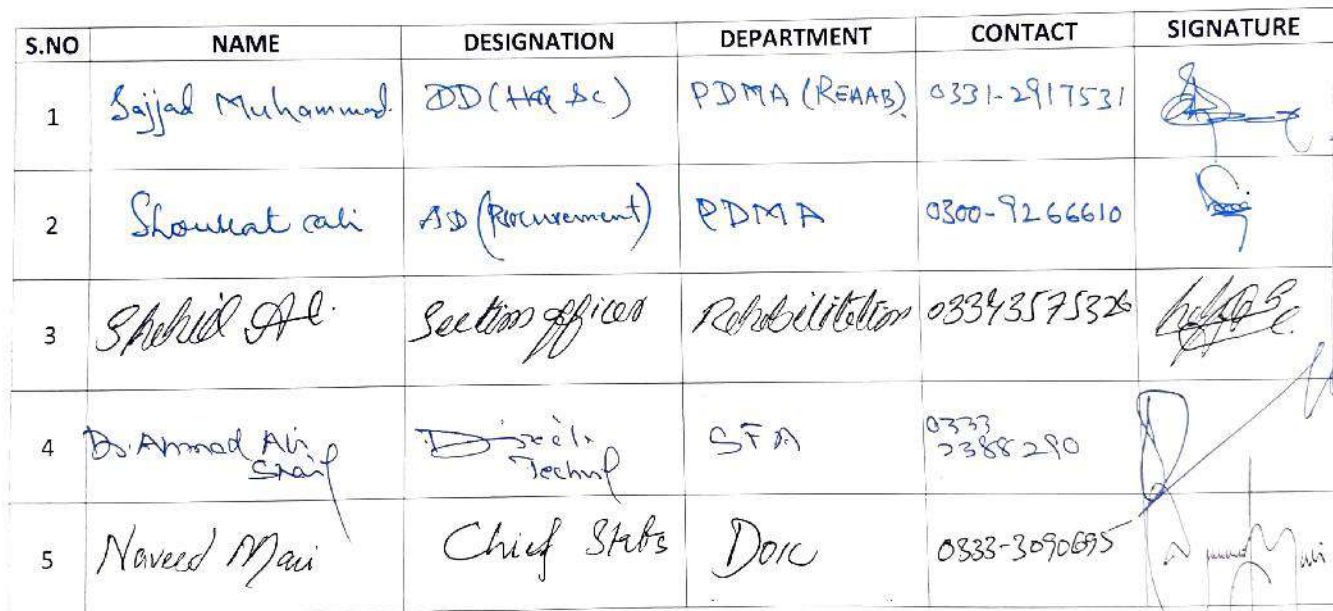 S.NO NAME DESIGNATION DEPARTMENT CONTACT SIGNATURE
1 Sajjad Muhammad DD (HQ Sc) PDMA (REHAB) 0331-2917531
2 Shoukat Ali AD (Procurement) PDMA 0300-9266610
3 Shahid Al. Section officer Rehabilitation 03343575326
4 Dr. Ahmad Ali SFA 0333
Technl 2388290
5 Naveed Chief Stats 0333-3090695